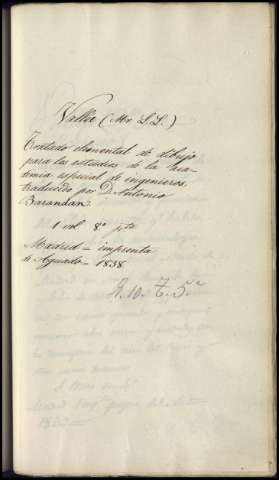 Vallee (Mr L.L.)
Tratado elemental de dibujo
para los estudios de la Aca-
demia especial de ingenieros
traducido por D. Antonio
Barandan.
1 vol 8º pta
Madrid - imprenta
de Aguado - 1838.